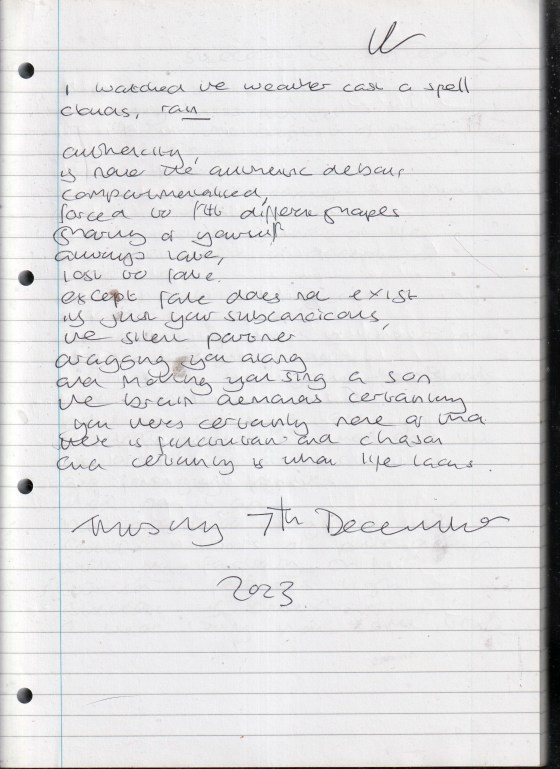 I watched the weather cast a spell
clouds, rain
authenticity,
is now the authentic debour,
compartmentalised,
forced to fit different shapes
of yourself
always late,
lost to fate.
except fate does not exist
it's just your subconcious,
the silent partner
dragging you along
and making you sing a son
the brain demands certainty
you certainty none of
there is and
and certainty is what life lacks.
Thursday 7th December
2023